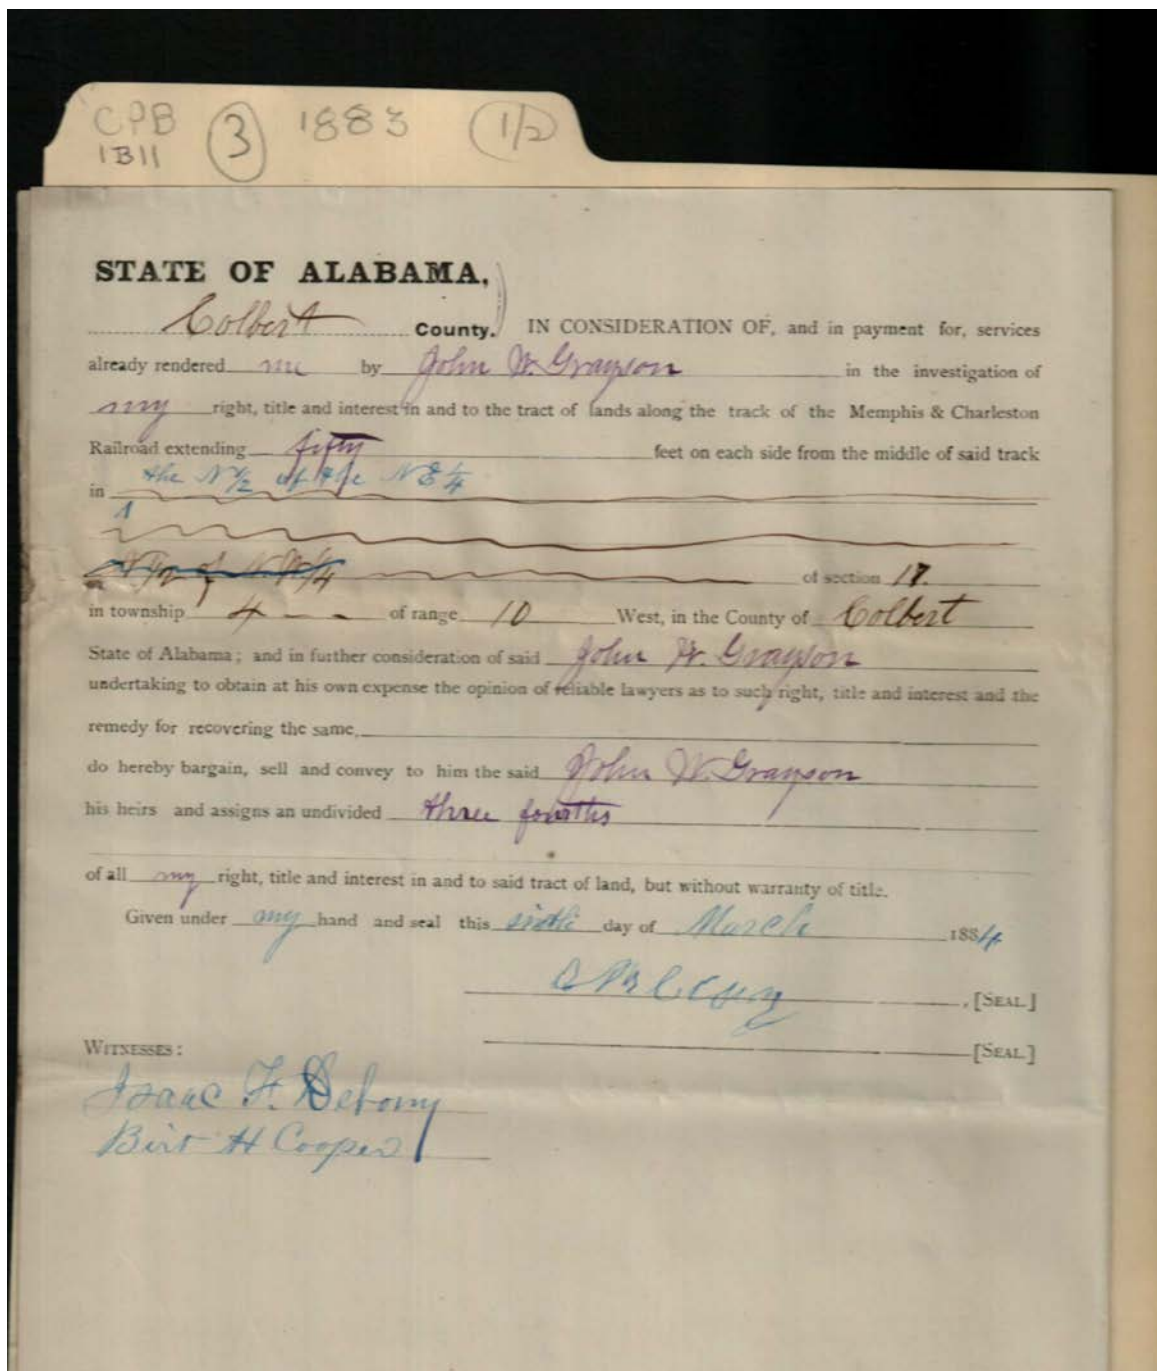 CPB 3 1883 1/2
1B11
STATE OF ALABAMA,
Colbert County. IN CONSIDERATION OF, and in payment for, services
already rendered me by John W. Grayson in the investigation of
my right, title and interest in and to the tract of lands along the track of the Memphis & Charleston
Railroad extending fifty feet on each side from the middle of said track
in the N 1/2 of the NE 1/4
N 1/2 of N.W. 1/4 of section 17.
in township 4 of range 10 West, in the County of Colbert
State of Alabama; and in further consideration of said John W. Grayson
undertaking to obtain at his own expense the opinion of reliable lawyers as to such right, title and interest and the
remedy for recovering the same,
do hereby bargain, sell and convey to him the said John W. Grayson
his heirs and assigns an undivided three fourths
of all my right, title and interest in and to said tract of land, but without warranty of title.
Given under my hand and seal this sixth day of March 1884
[SEAL]
WITNESSES: [SEAL]
Isaac F. Delony
Birt H Cooper